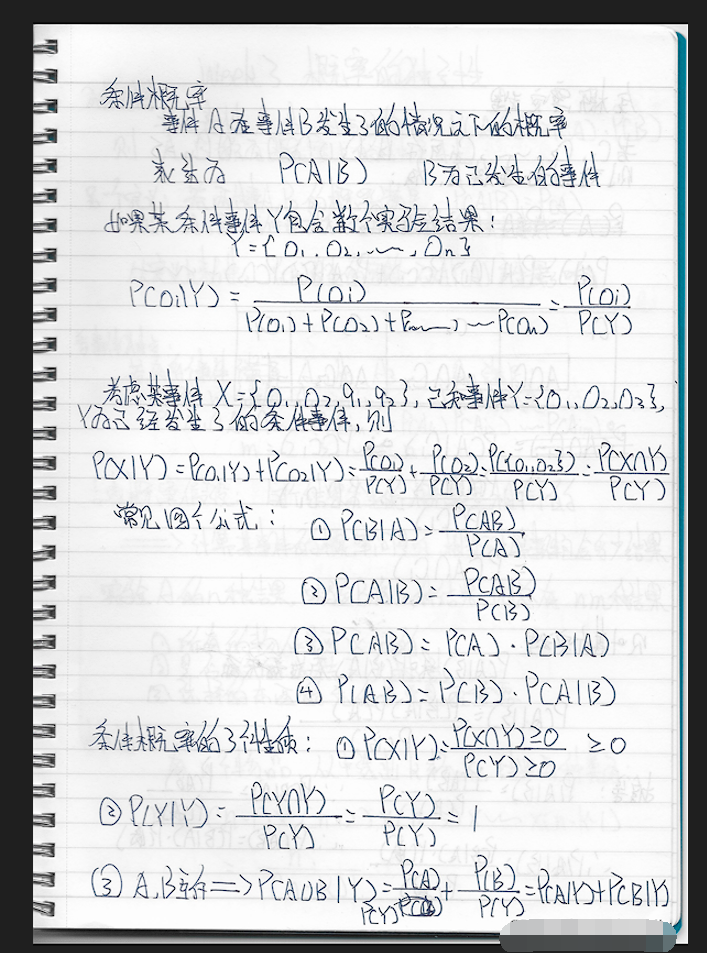 条件概率
事件A在事件B发生了的情况之下的概率
表达为 P(A|B) B为已发生的事件
如果某条件事件Y包含数个实验结果:
Y={O₁,O₂,……,Oₙ}
P(Oᵢ|Y)=P(Oᵢ)/(P(O₁)+P(O₂)+P……P(Oₙ))=P(Oᵢ)/P(Y)
考虑某事件X={O₁,O₂,q₁,q₂},已知事件Y={O₁,O₂,O₃},
Y为已经发生了的条件事件,则
P(X|Y)=P(O₁|Y)+P(O₂|Y)=P(O₁)/P(Y)+P(O₂)/P(Y)=P({O₁,O₂})/P(Y)=P(X∩Y)/P(Y)
常见四个公式: ① P(B|A)=P(AB)/P(A)
② P(A|B)=P(AB)/P(B)
③ P(AB)=P(A)·P(B|A)
④ P(AB)=P(B)·P(A|B)
条件概率的3个性质: ① P(X|Y)=P(X∩Y)≥0/P(Y)≥0 ≥0
② P(Y|Y)=P(Y∩Y)/P(Y)=P(Y)/P(Y)=1
③ A,B互斥=>P(A∪B|Y)=P(A)/P(Y)+P(B)/P(Y)=P(A|Y)+P(B|Y)